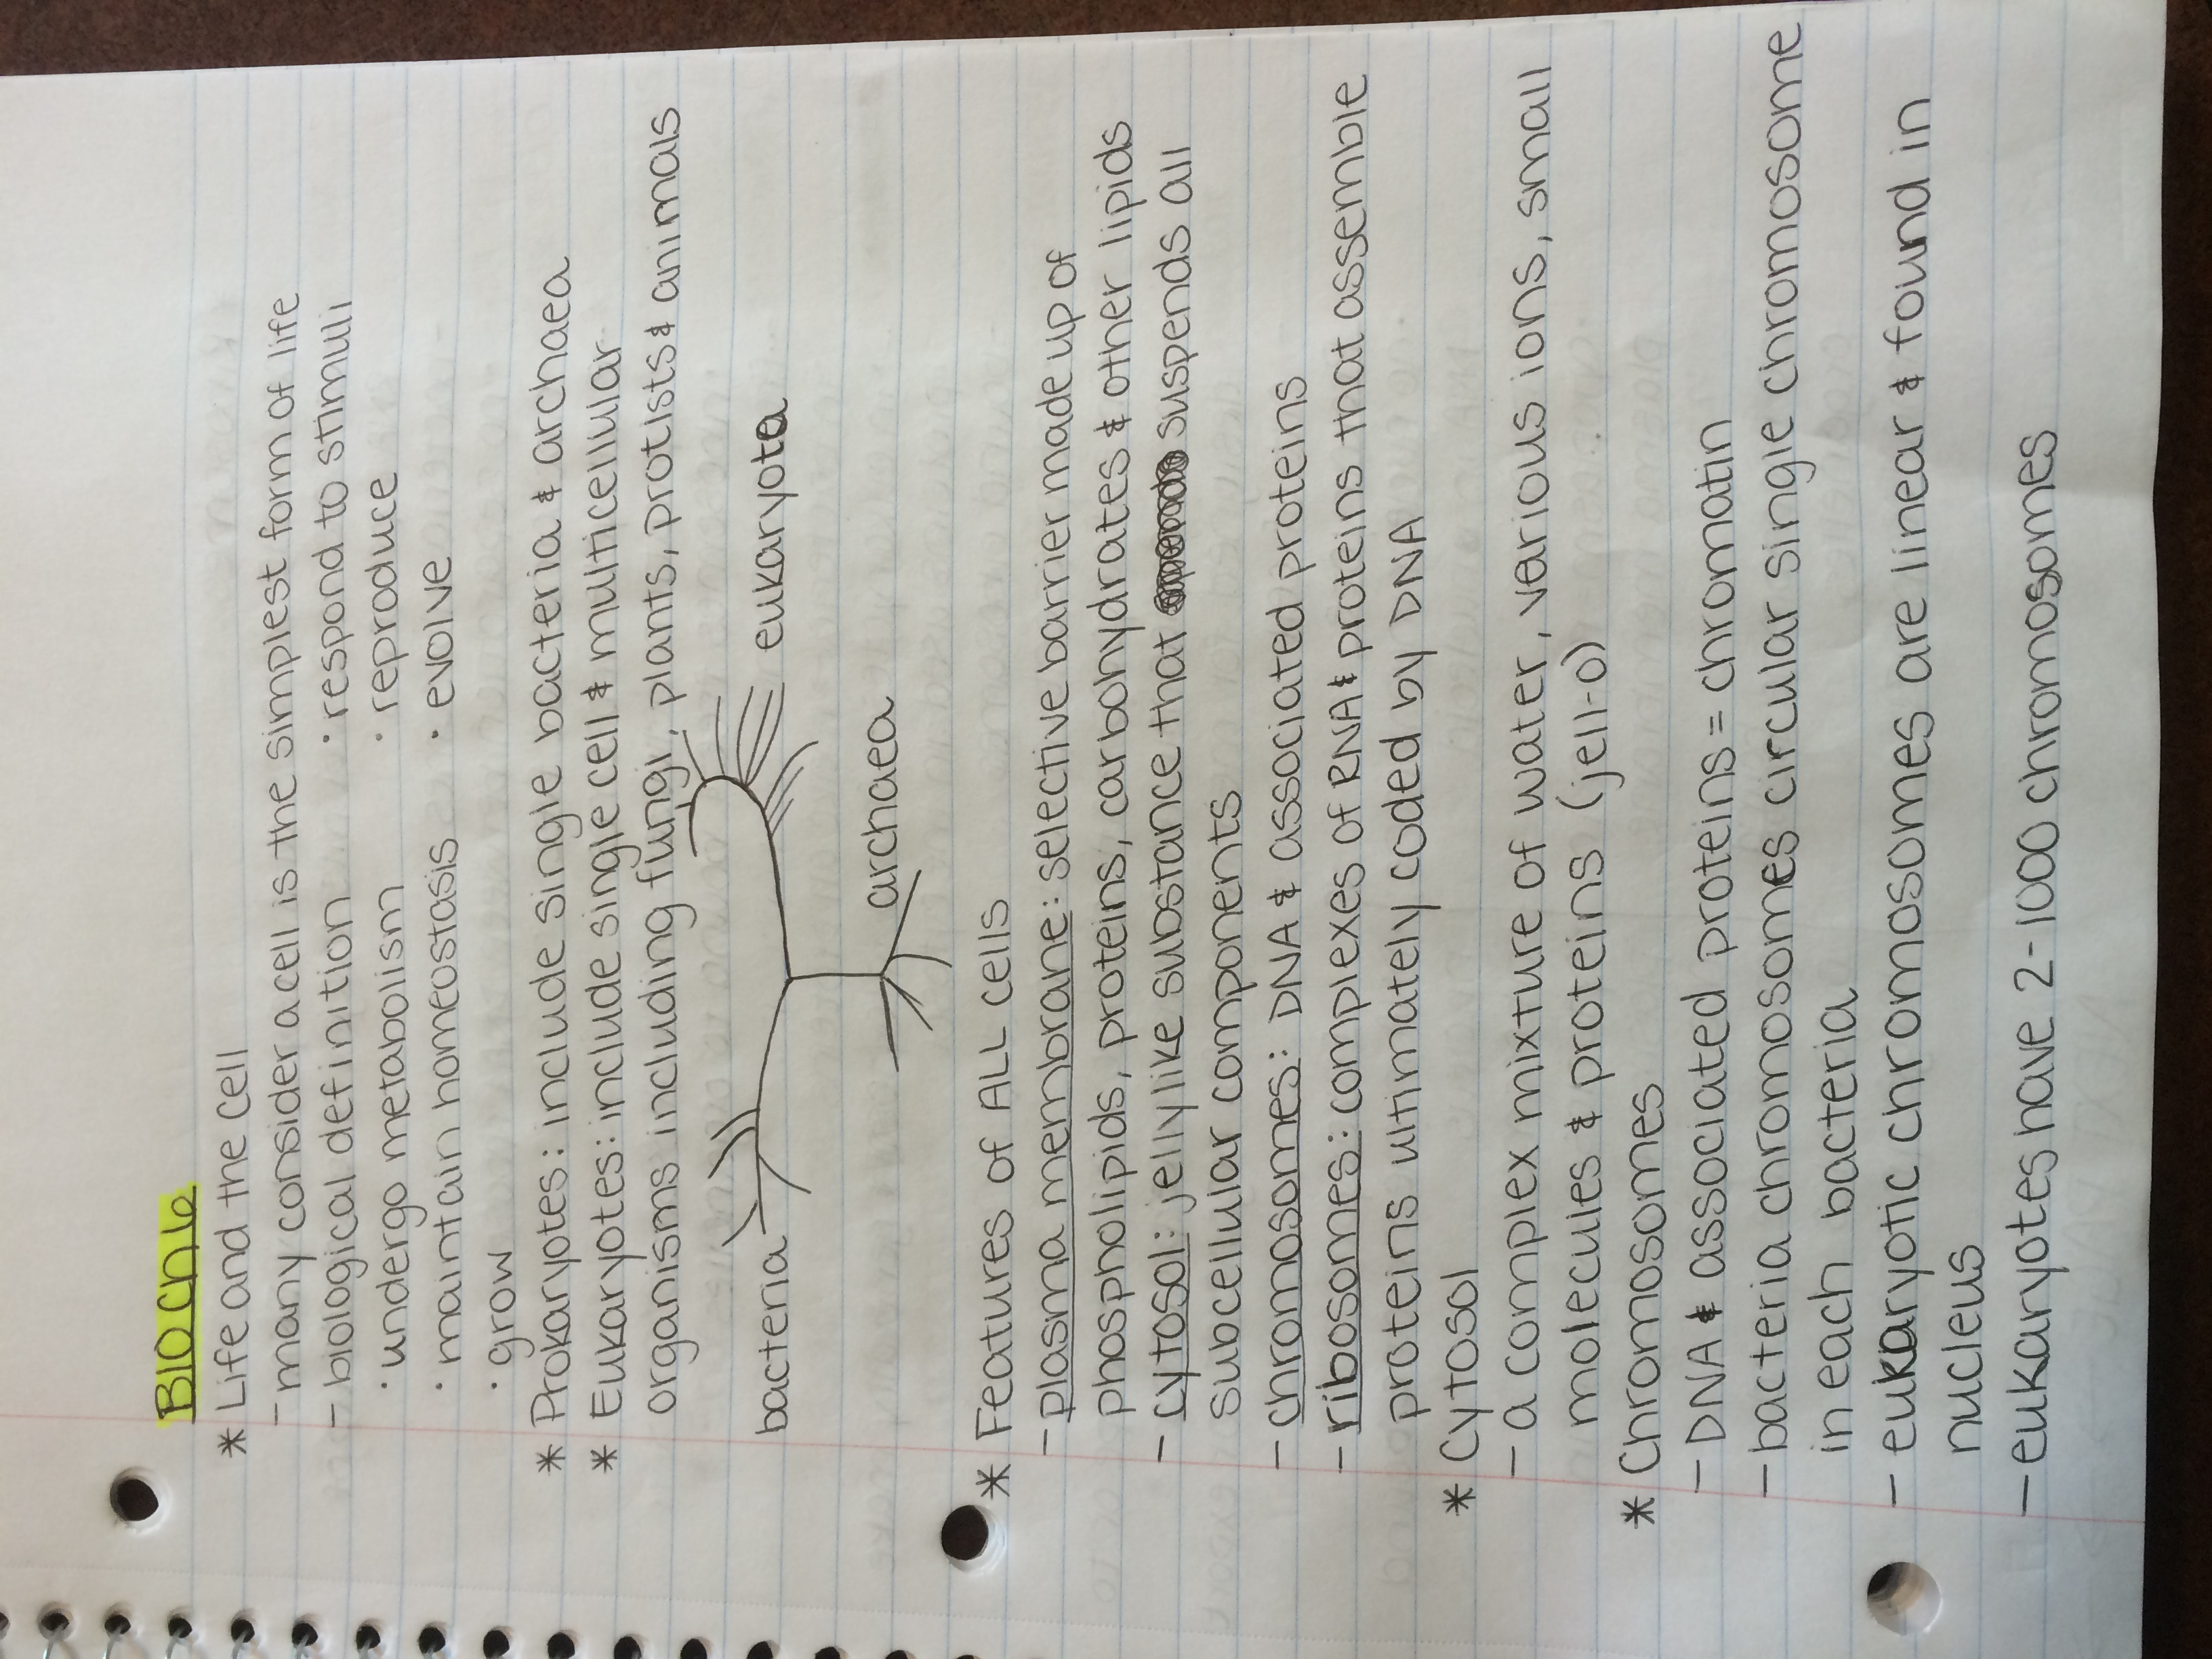 BIO CH 6
* Life and the Cell
- many consider a cell is the simplest form of life
- biological definition · respond to stimuli
· undergo metabolism · reproduce
· maintain homeostasis · evolve
· grow
* Prokaryotes: include single bacteria & archaea
* Eukaryotes: include single cell & multicellular
organisms including fungi, plants, protists & animals
bacteria eukaryota
archaea
* Features of ALL cells
- plasma membrane: selective barrier made up of
phospholipids, proteins, carbohydrates & other lipids
- cytosol: jellylike substance that suspends all
subcellular components
- chromosomes: DNA & associated proteins
- ribosomes: complexes of RNA & proteins that assemble
proteins ultimately coded by DNA
* Cytosol
- a complex mixture of water, various ions, small
molecules & proteins (jell-o)
* Chromosomes
- DNA & associated proteins = chromatin
- bacteria chromosomes circular single chromosome
in each bacteria
- eukaryotic chromosomes are linear & found in
nucleus
- eukaryotes have 2-1000 chromosomes